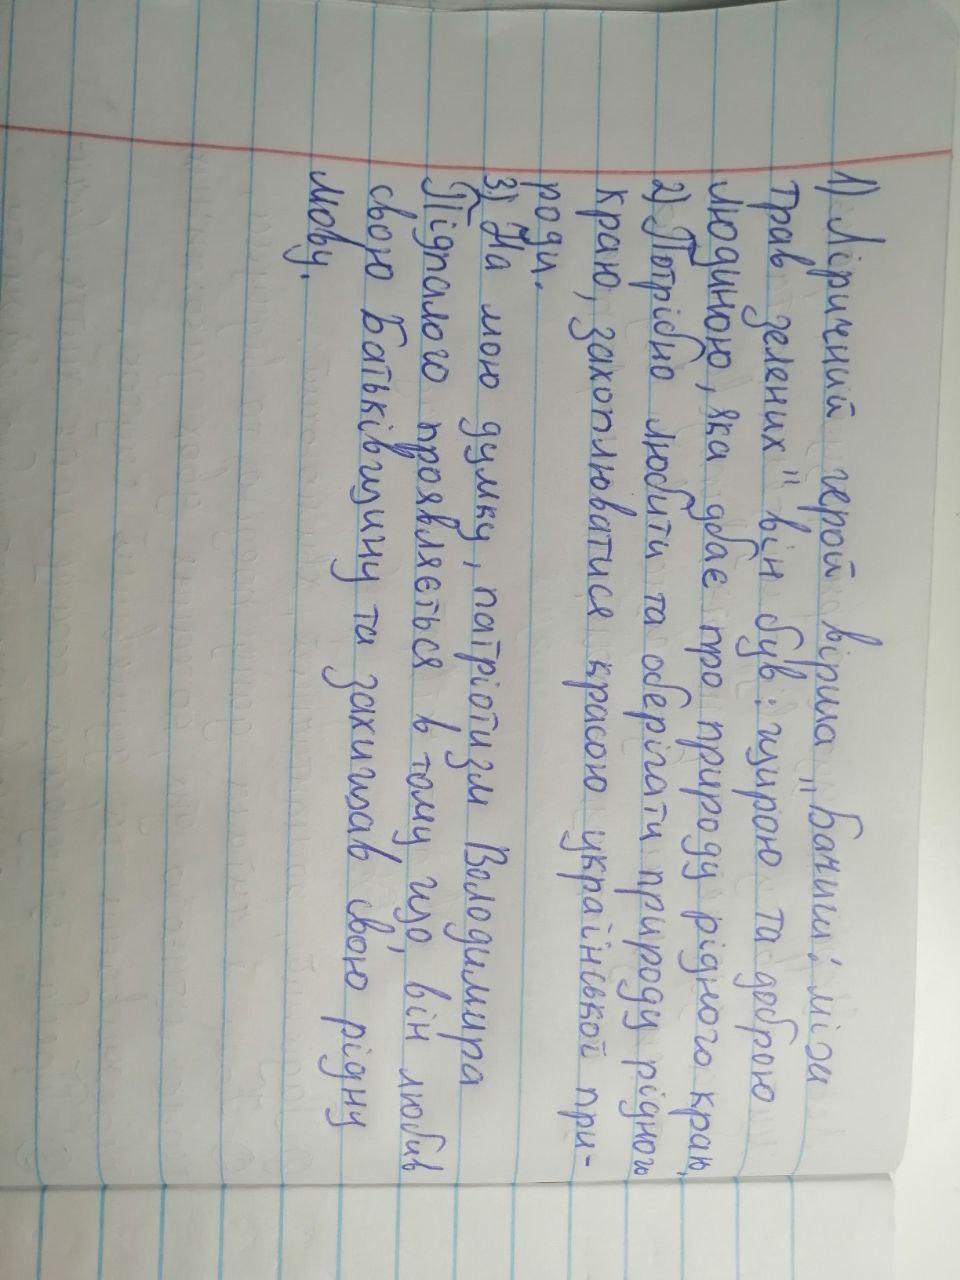 1) Ліричний герой вірша "Бачиш: між
трав зелених" він був: щирою та доброю
людиною, яка дбає про природу рідного краю,
2) Потрібно любити та оберігати природу рідного
краю, захоплюватися красою української при-
роди.
3) На мою думку, патріотизм Володимира
Підпалого проявляється в тому що, він любив
свою Батьківщину та захищав свою рідну
мову.